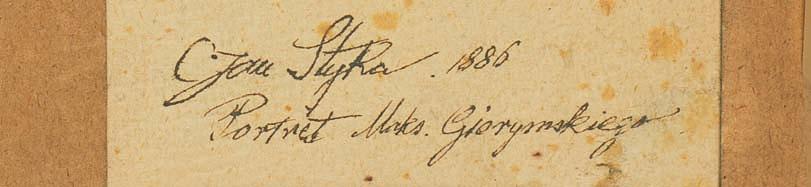 Jan Styka . 1886
Portret Maks. Gierymskiego